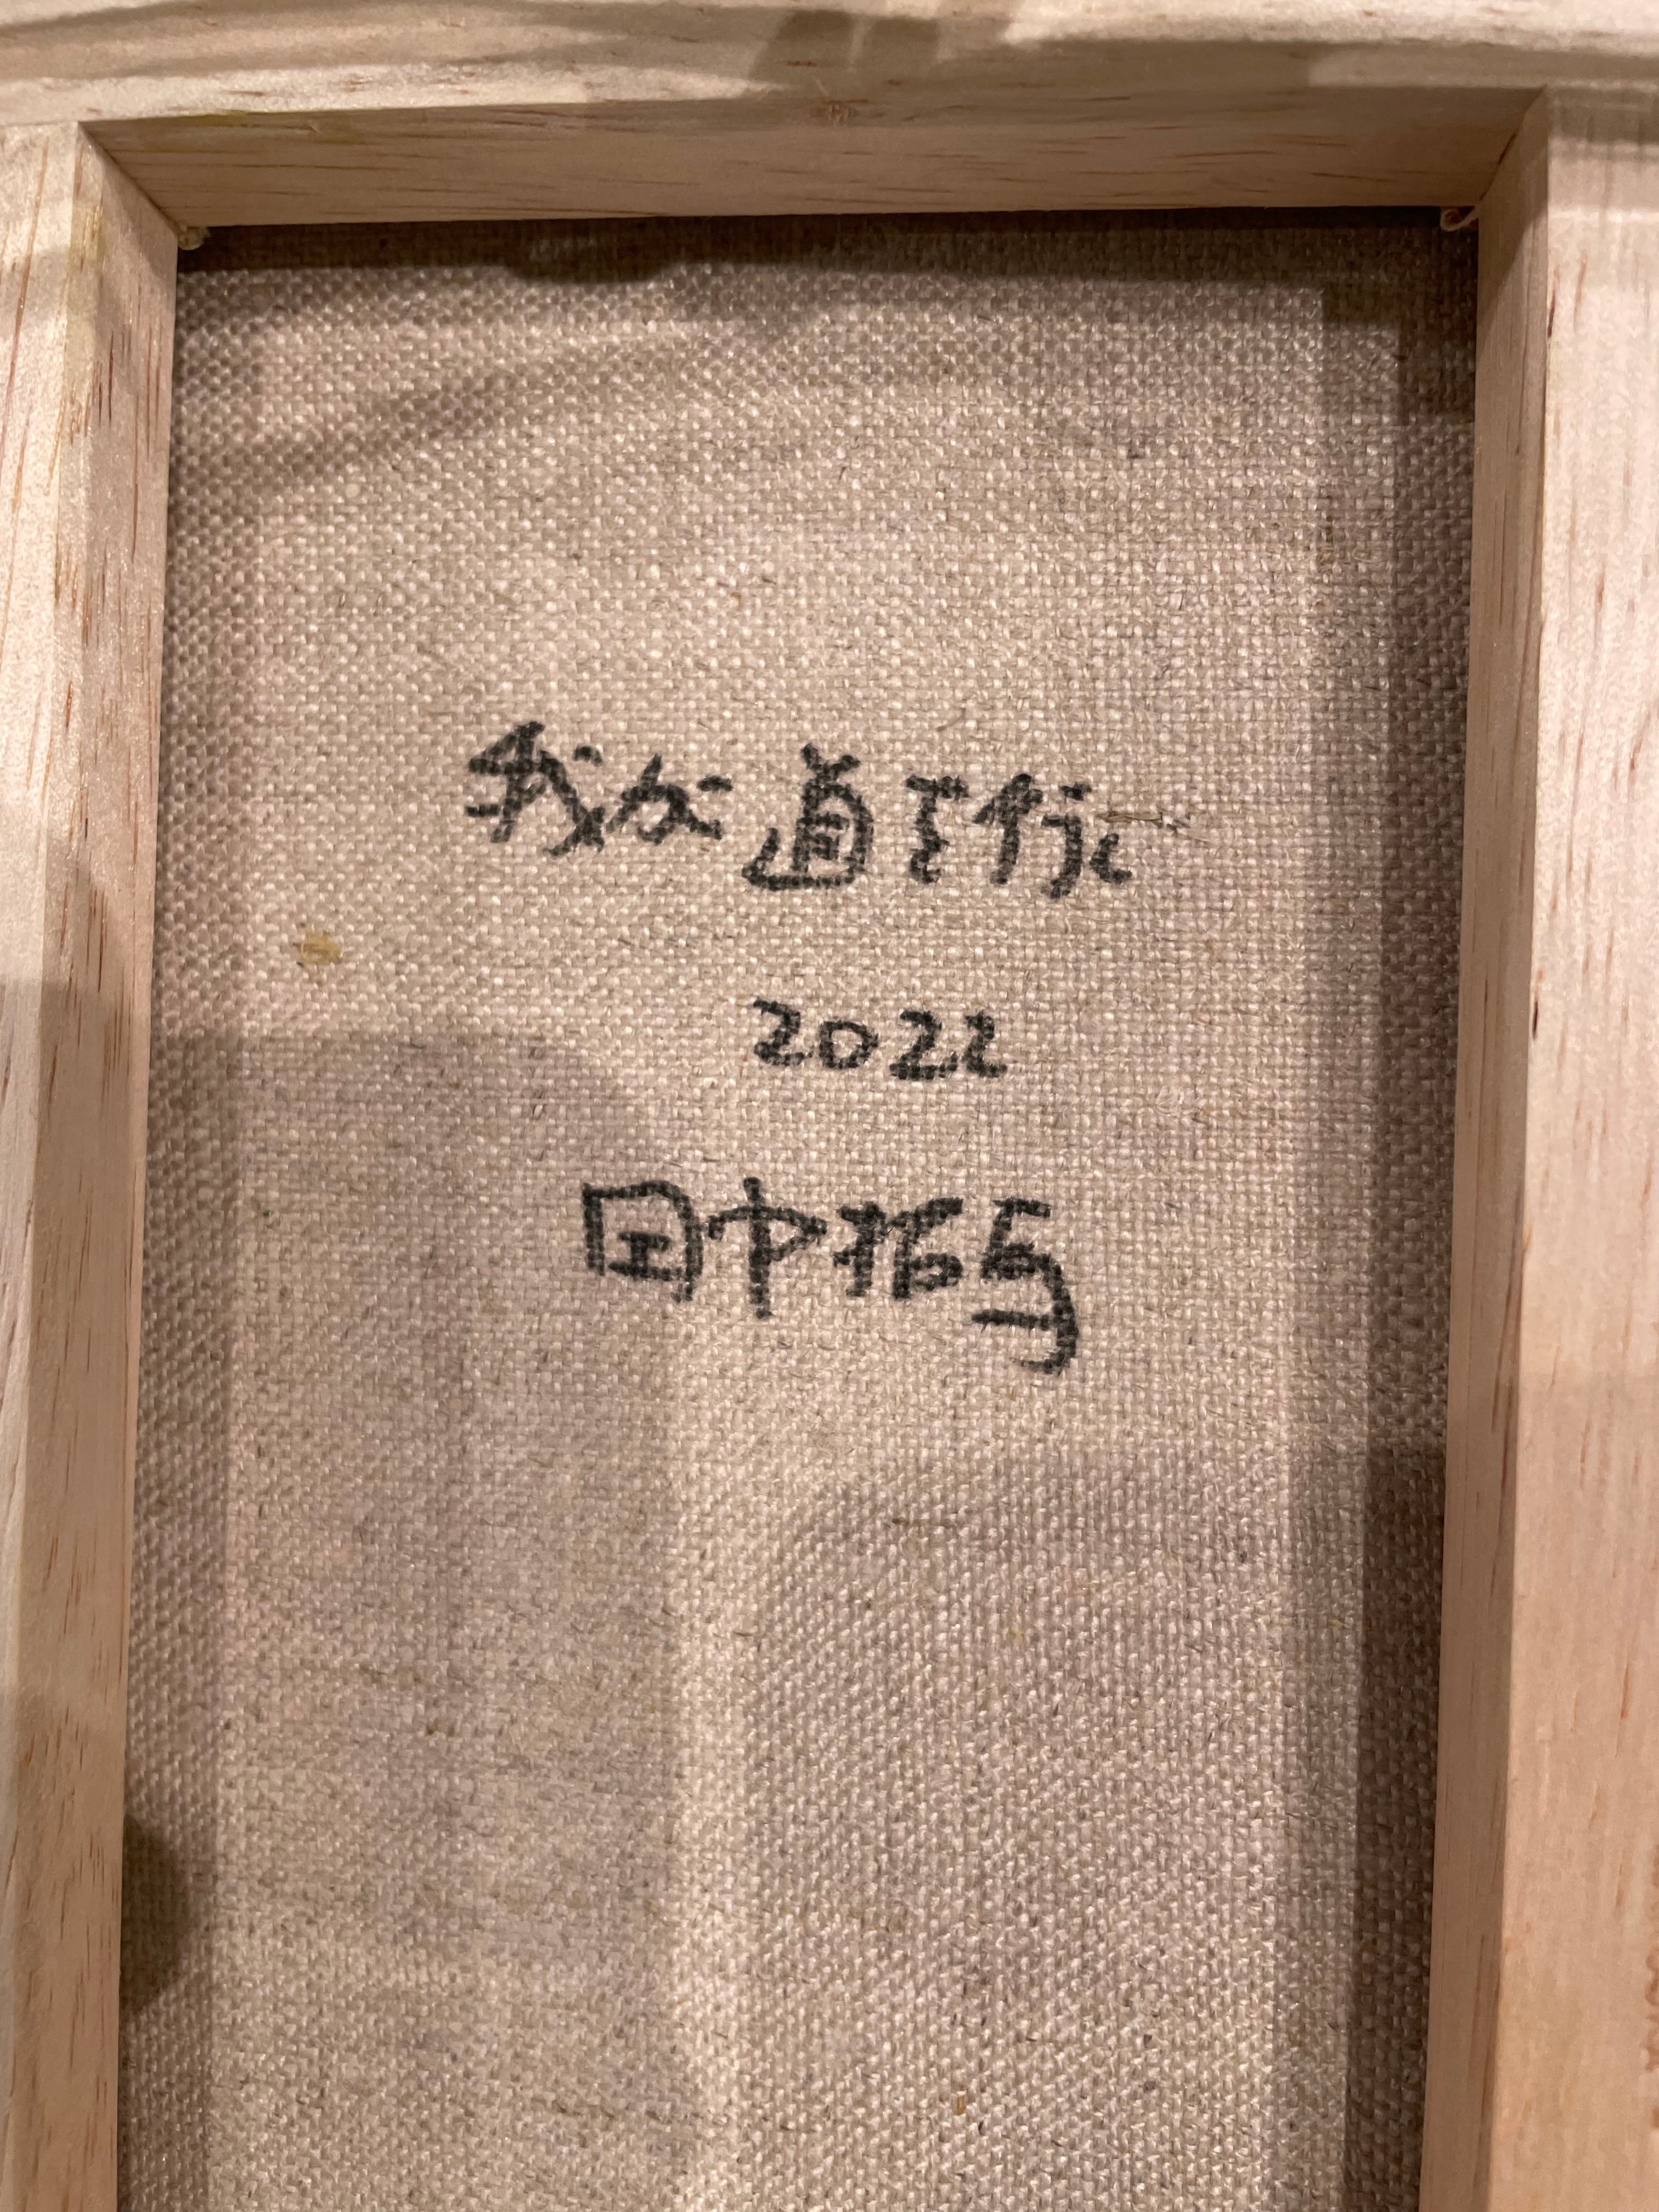 我が道を行く
2022
田中拓馬